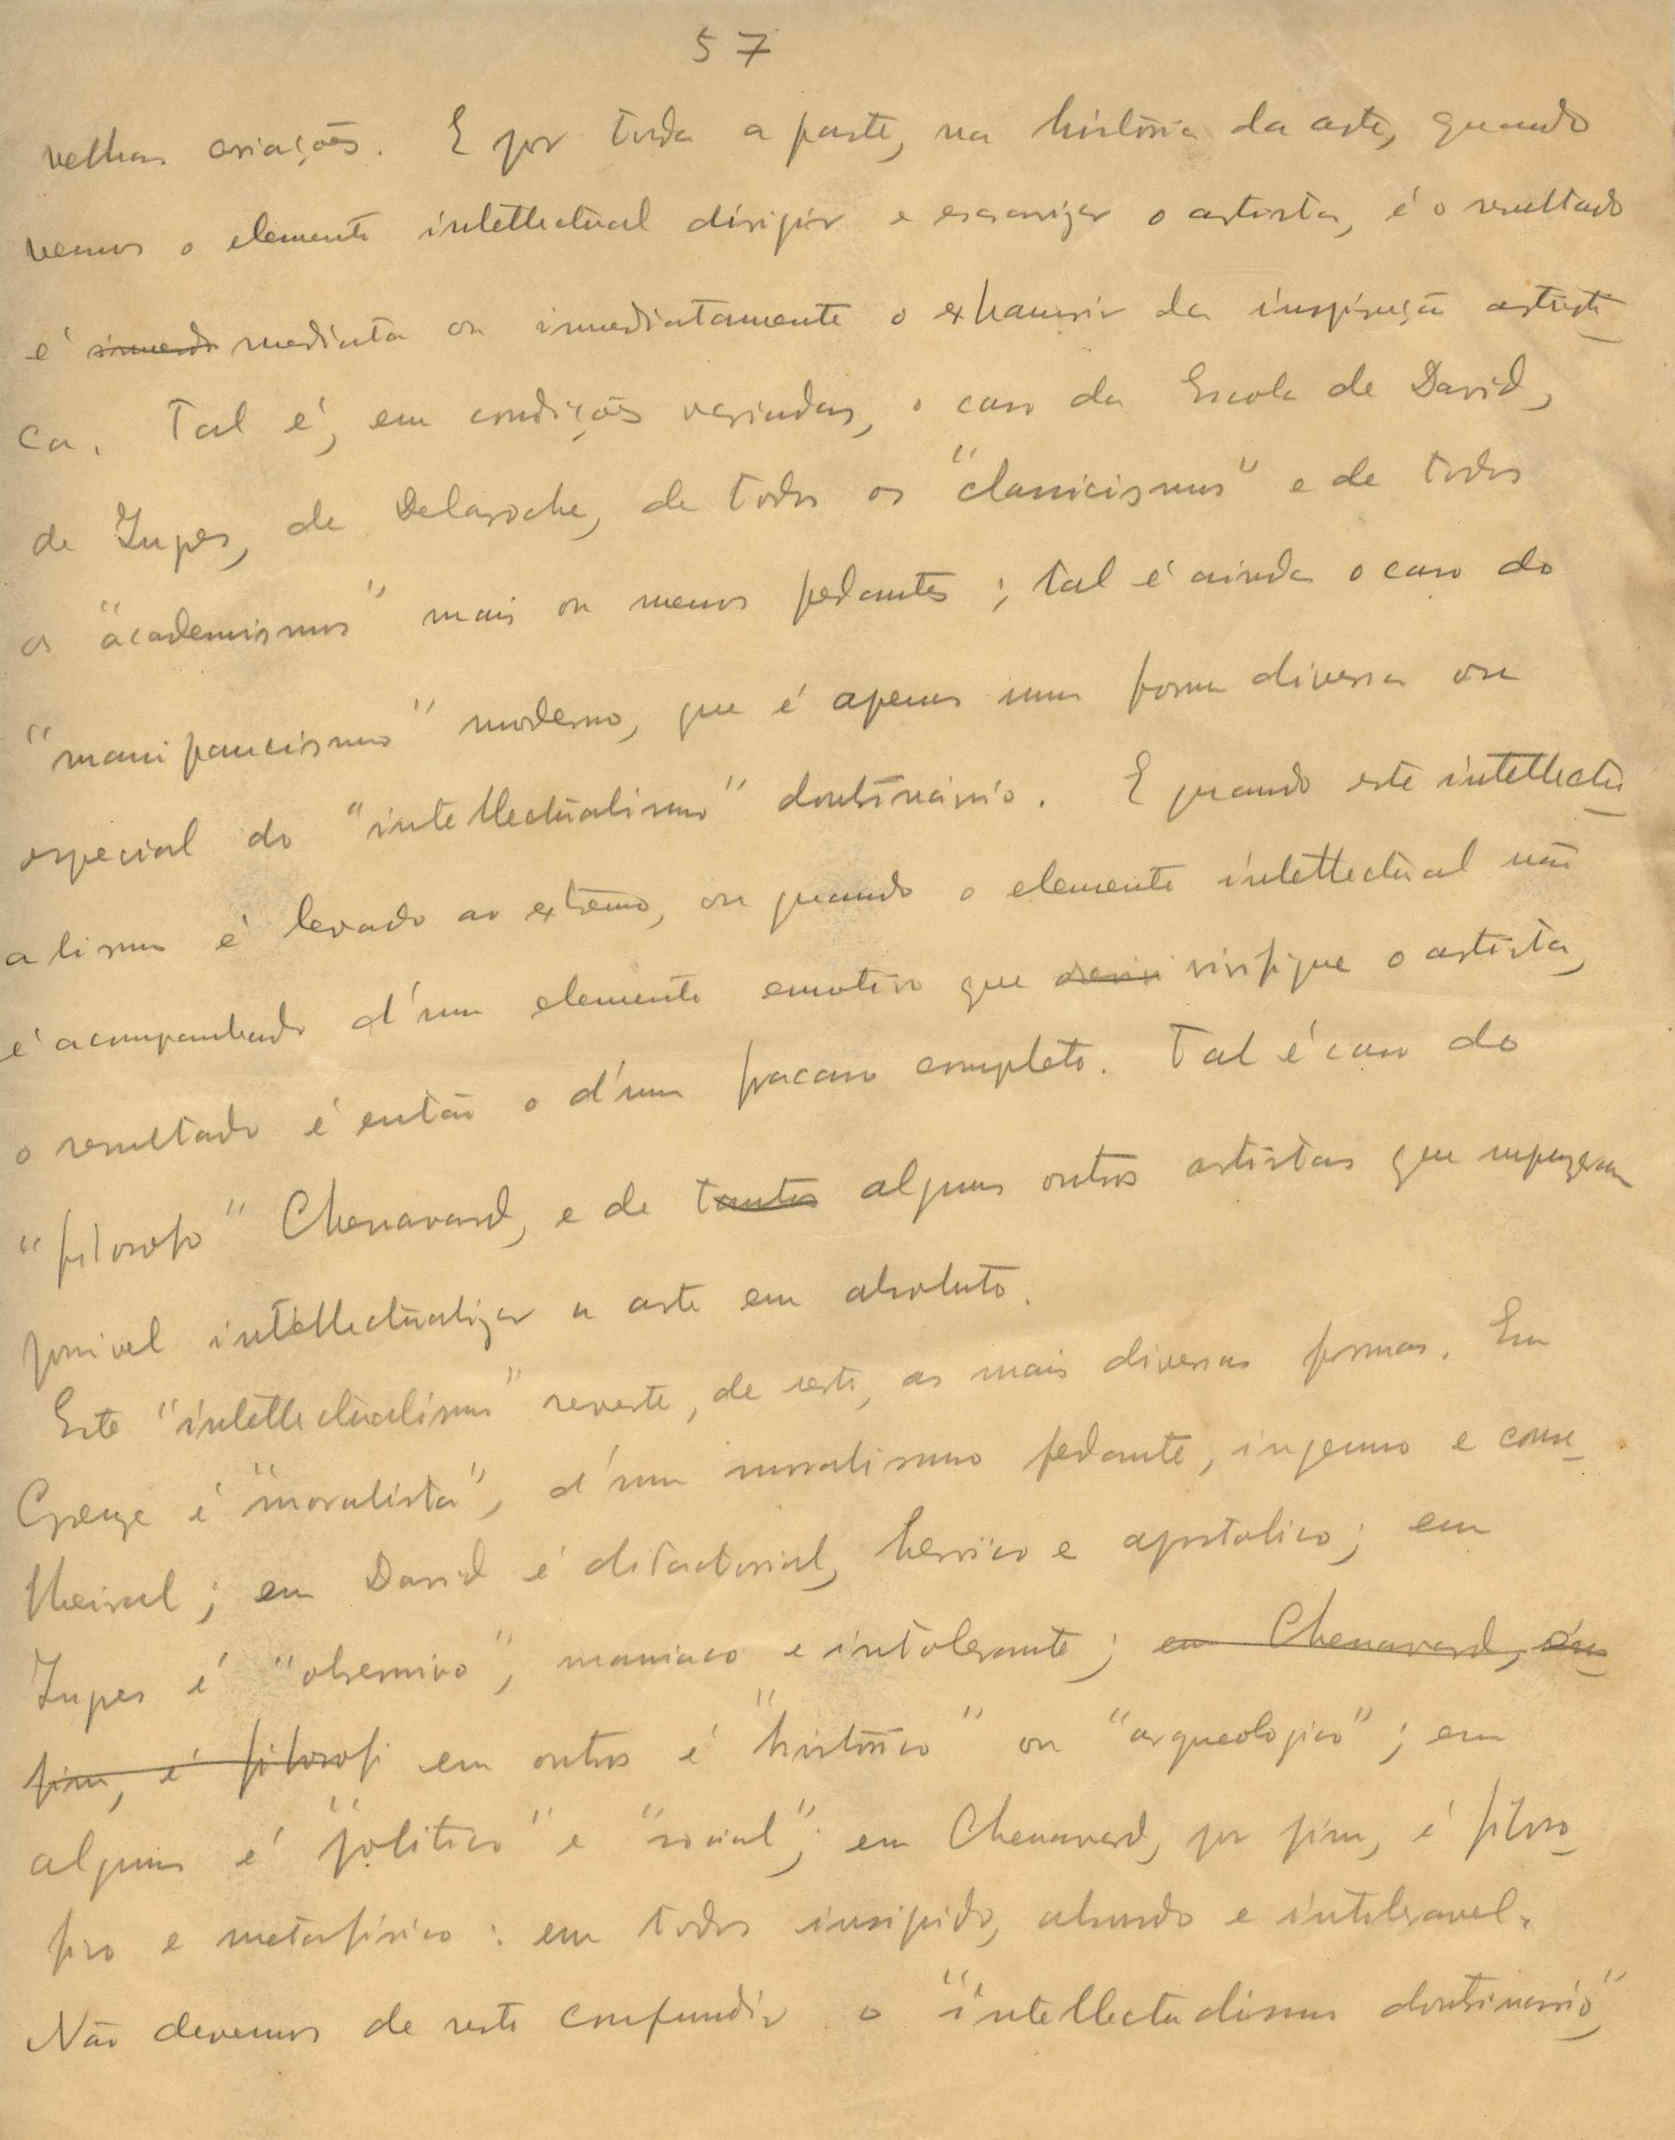 57
velhas criações. E por toda a parte, na história da arte, quando
vemos o elemento intellectual dirigir e escravizar o artista, é o resultado
é mediata ou immediatamente o exhaurir da inspiração artisti-
ca. Tal é, em condições variadas, o caso da Escola de David,
de Ingres, de Delaroche, de todos os "classicismos" e de todos
os "academismos" mais ou menos pedantes; tal é ainda o caso do
moderno, que é apenas uma forma diversa ou
especial do "intellectualismo" doutrinário. E quando este intellectu-
alismo é levado ao extremo, ou quando o elemento intellectual não
é acompanhado d'um elemento emotivo que vivifique o artista,
o resultado é então o d'um fracasso completo. Tal é caso do
"filosofo" Chenavard, e de tantos alguns outros artistas que supuzeram
possivel intellectualizar a arte em absoluto.
Este "intellectualismo" reveste, de resto, as mais diversas formas. Em
Greuze é "moralista", d'um moralismo pedante, ingenuo e conse-
lheiral; em David é ditatorial, heroico e apostolico; em
Ingres é "obsessivo", maniaco e intolerante; em Chenavard, em
fim, é filosofi em outros é "histórico" ou "arqueologico"; em
alguns é "politico" e "social"; em Chenavard, por fim, é filoso-
fico e metafisico: em todos insipido, absurdo e intoleravel.
Não devemos de resto confundir o "intellectualismo doutrinario",